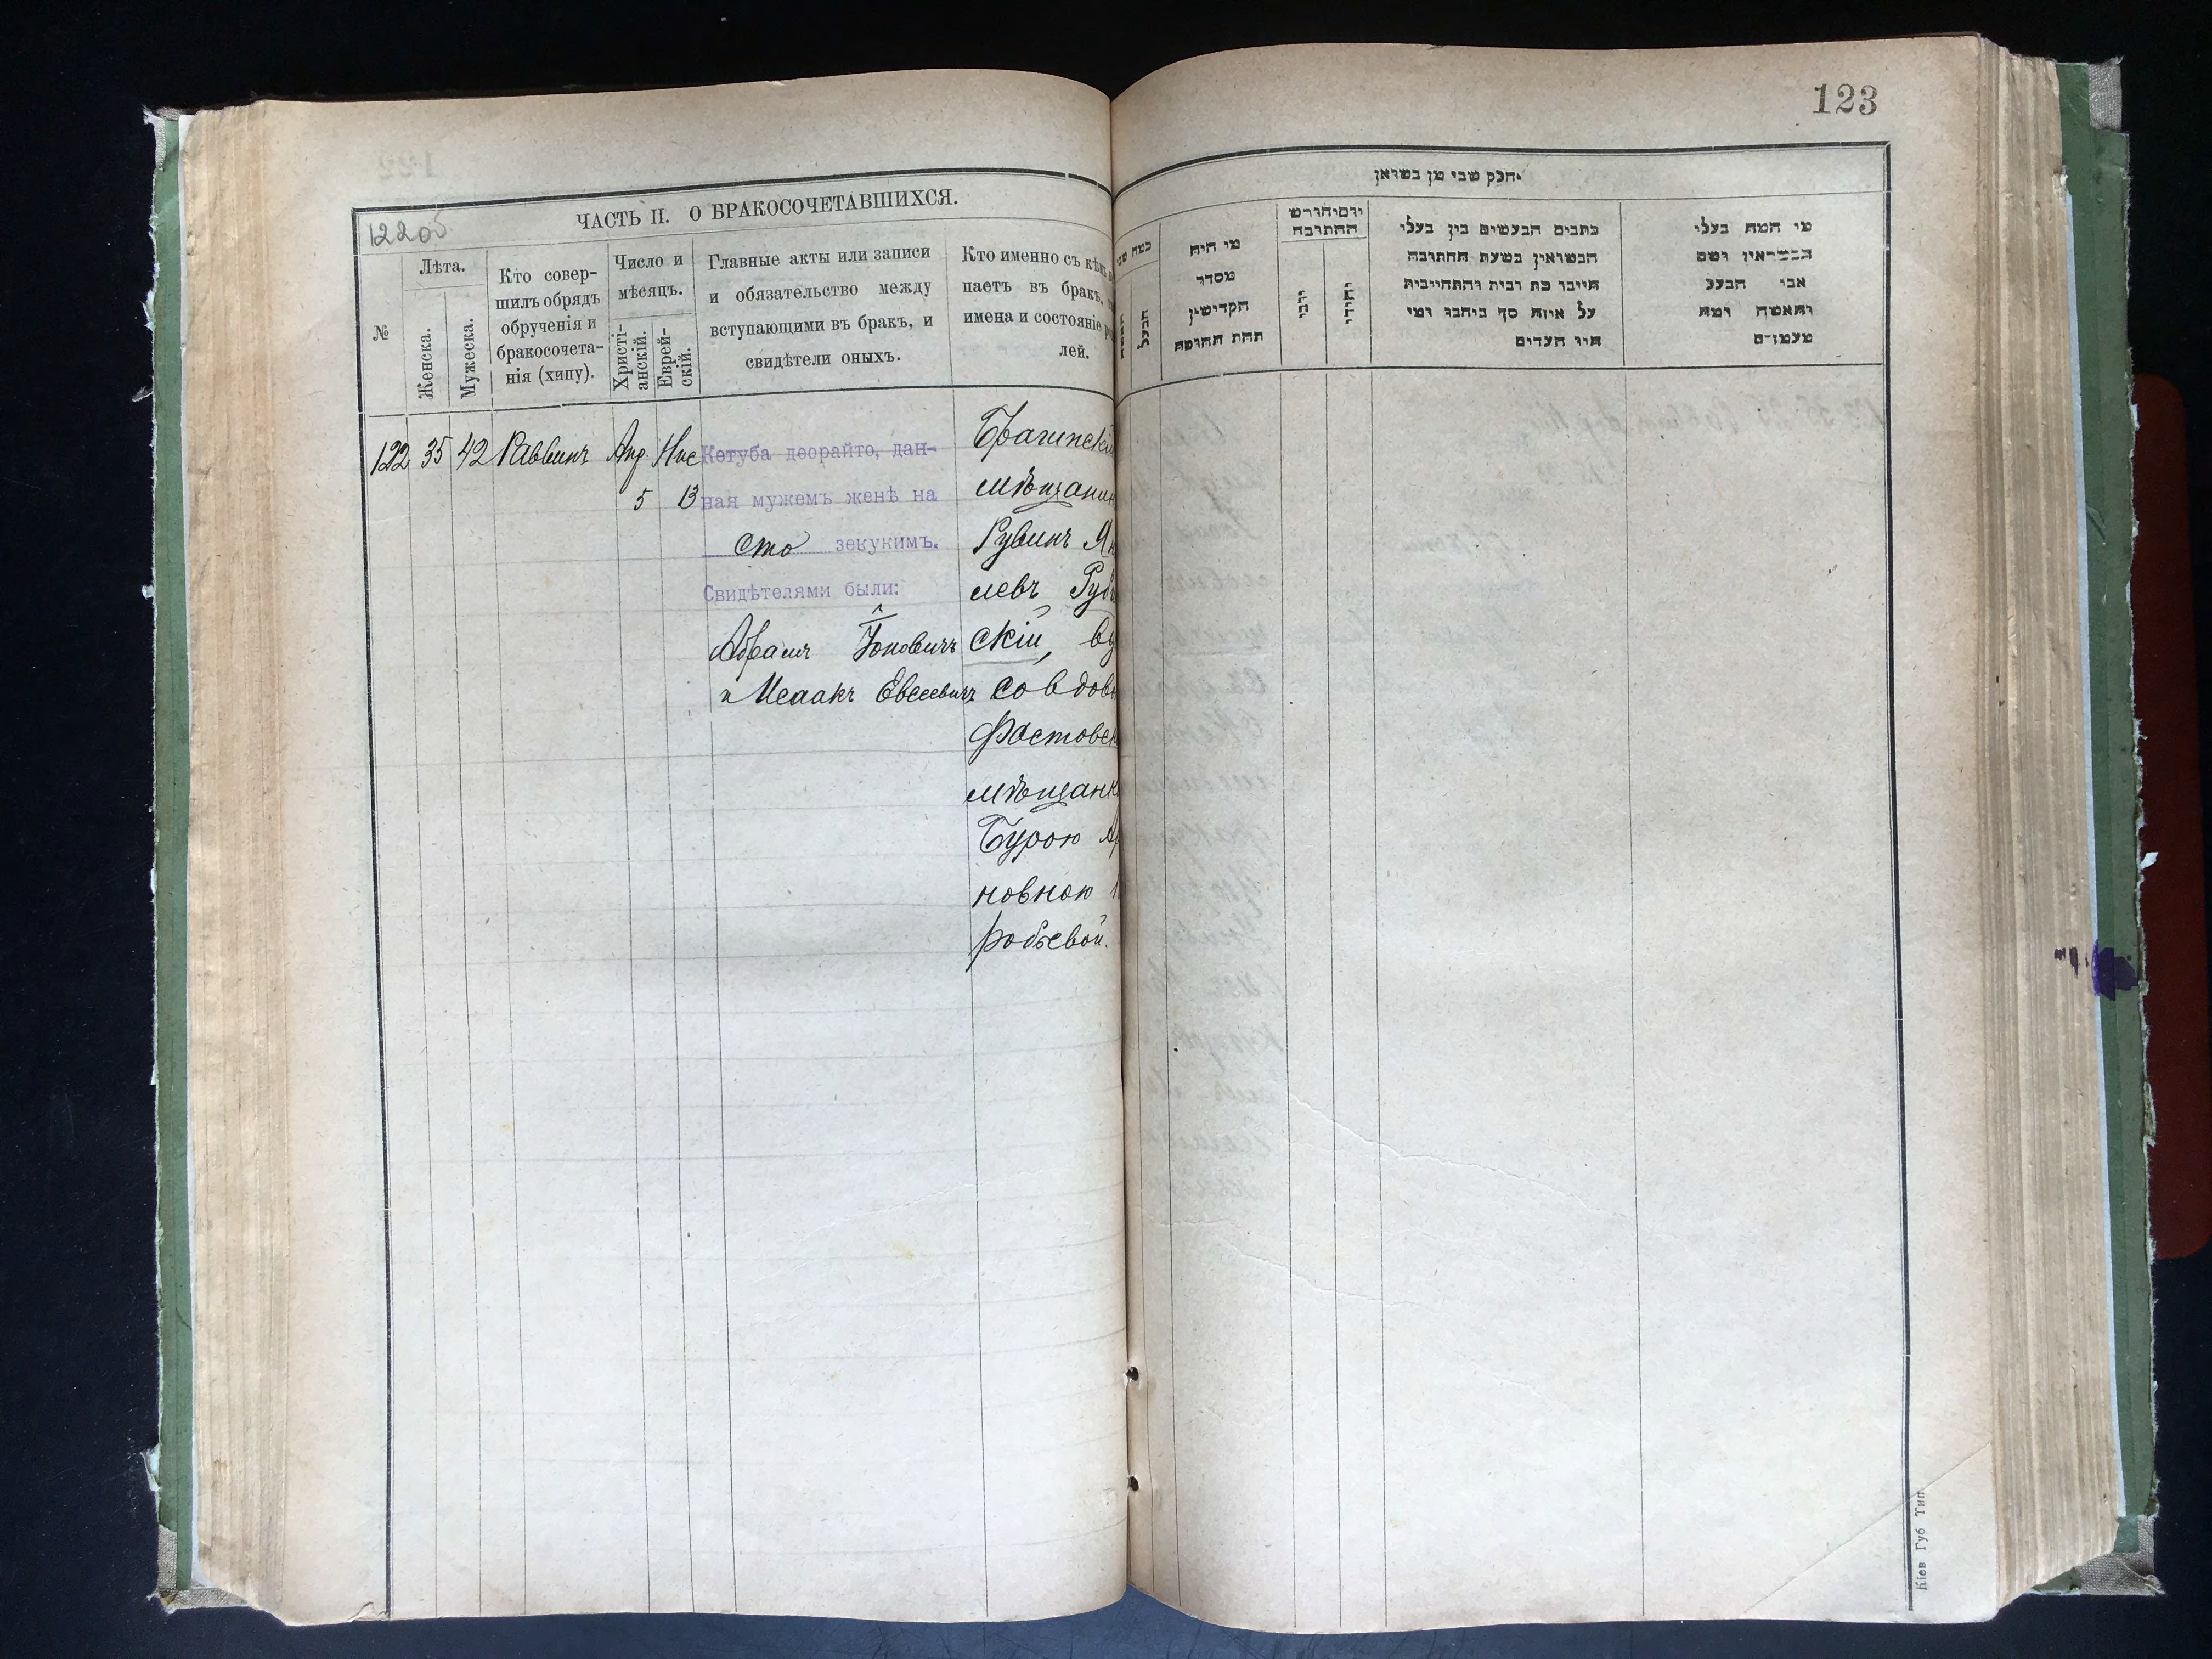 123
ЧАСТЬ II. О БРАКОСОЧЕТАВШИХСЯ.
122об
№
Лѣта.
Женска.
Мужеска.
Кто совер-
шилъ обрядъ
обрученія и
бракосочета-
нія (хипу).
Число и
мѣсяцъ.
Христі-
анскій.
Еврей-
скій.
Главные акты или записи
и обязательство между
вступающими въ бракъ, и
свидѣтели оныхъ.
Кто именно съ кѣмъ
паетъ въ бракъ,
имена и состояніе
лей.
122 35 42 Раввинъ Апр. Нис
5 13
Кетуба деорайто, дан-
ная мужемъ женѣ на
сто зекукимъ.
Свидѣтелями были:
Абрамъ Іоновичъ
и Исаакъ Евсеевичъ
Брагинскій
мѣщанин
Рувинъ Ян
левъ Руб
скій, вд
со вдов
Фастовск
мѣщанк
Бурою А
новною
робьевой.
חלק שני מן נשואין
מי המה בעלי
הנשואין ושם
אבי הבעל
והאשה ומה
מעמדם
כתבים הנעשים בין בעלי
הנשואין בשעת החתונה
חייבו כת רבית והתחייבית
על איזה סך ביניהם ומי
היו העדים
יום וחודש
החתונה
יהודי
נוצרי
מי היה
מסדר
הקדישין
תחת החופה
כמה שני
הבעל
האשה
Кіев Губ Тип